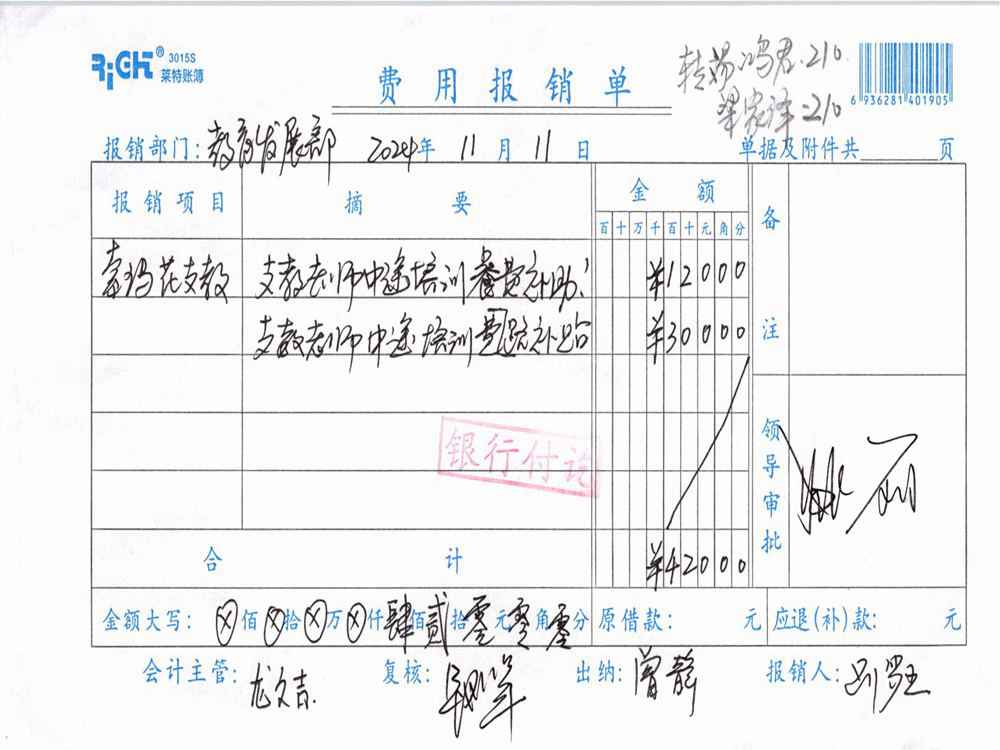 RiCH® 3015S
莱特账簿
费用报销单
转杨鸣君:210
梁家泽:210
6 936281 401905
报销部门:教育发展部 2024年11月11日 单据及附件共 页
报销项目 摘要 金额 备注
百十万千百十元角分
索玛花支教 支教老师中途培训餐费补助 ¥12000
支教老师中途培训 补 ¥30000
银行付讫
领导审批
合计 ¥42000
金额大写: ⊗佰⊗拾⊗万⊗仟肆佰贰拾零元零角零分 原借款: 元 应退(补)款: 元
会计主管: 龙文吉 复核: 出纳: 曾静 报销人: